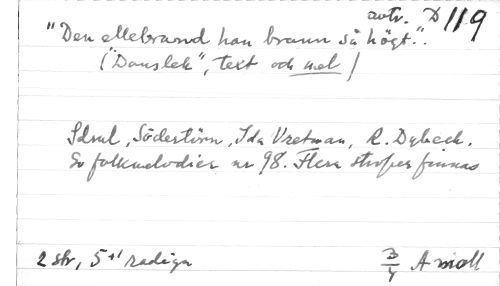 avtr. D 119
"Den ellebrand han brann så högt".
("Danslek", text och mel)
Sdml, Södertörn, Ida Vretman, R. Dybeck.
Sv folkmelodier nr 98. Flera strofer finnas
2 str, 5+1 radiga 3/4 A moll